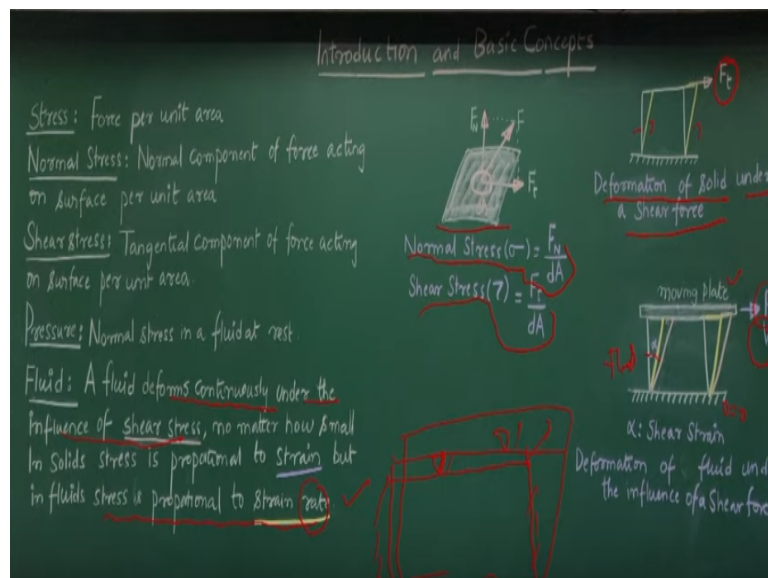 Introduction and Basic Concepts
Stress: Force per unit area
Normal Stress: Normal Component of force acting
on surface per unit area
Shear stress: Tangential Component of force acting
on surface per unit area.
Pressure: Normal stress in a fluid at rest.
Fluid: A fluid deforms continuously under the
influence of shear stress, no matter how small
In Solids stress is propotional to strain but
in fluids stress is propotional to strain rate.
FN
F
Ft
Normal Stress(σ) = FN/dA
Shear Stress(τ) = Ft/dA
Ft
Deformation of Solid under
a Shear force
moving plate
α
α: Shear Strain
Deformation of fluid und
the influence of a Shear forc